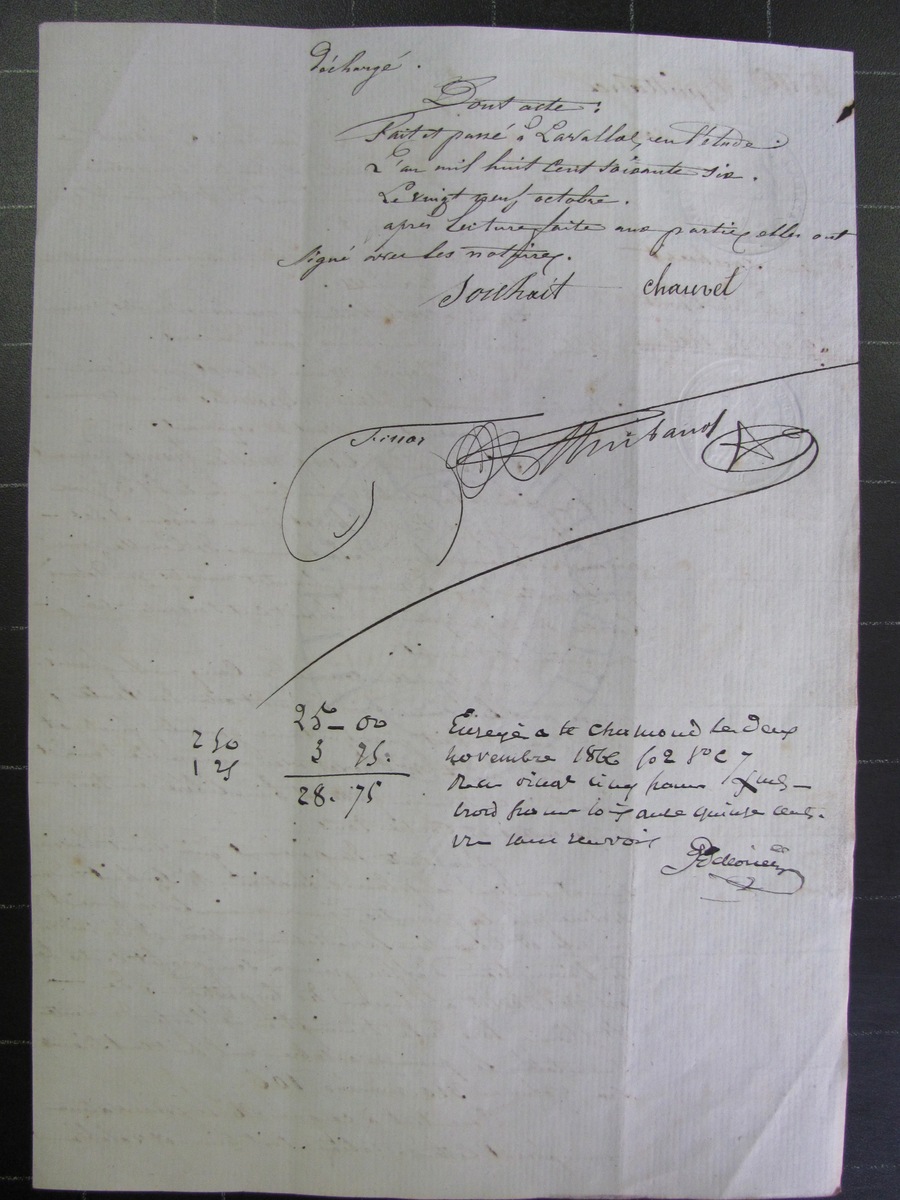 déchargé.
Dont acte:
Fait et passé à Lavalla, en l'étude.
L'an mil huit cent soixante six.
Le vingt neuf octobre.
après lecture faite aux parties elles ont
signé avec les notaires.
Souhait chauvet
Finaz
25 - 00
2 50 3 75.
1 25
28. 75
Enregé a St Chamond le deux
novembre 1866 fo 2
Reçu vingt cinq francs
trois francs soixante quinze cent.
un sans renvois